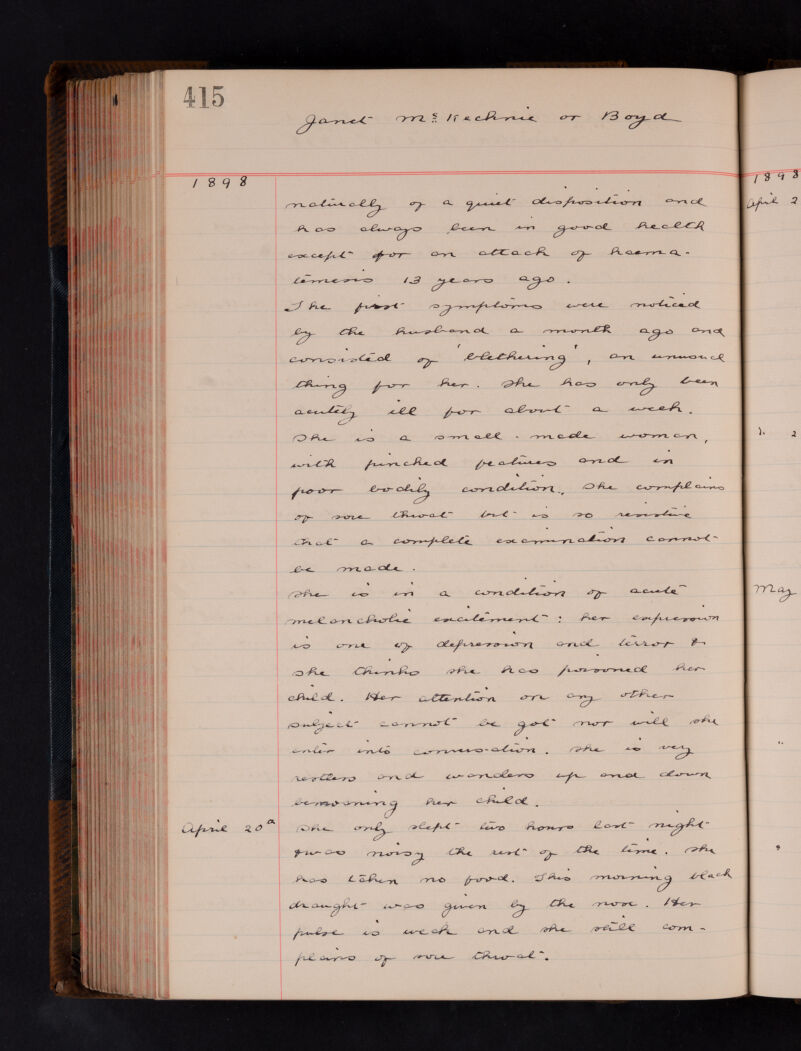 415
Janet McKechnie or Boyd
1898
naturally of a quiet disposition and
has always been in good health
except for an attack of haema-
temesis 13 years ago.
The first symptoms were noticed
by the husband a month ago and
consisted of 'blethering', an unusual
thing for her. She has only been
acutely ill for about a week.
She is a small-made woman,
with pinched features and in
poor bodily condition. She complains
of sore throat but is so resistive
that a complete examination cannot
be made.
She is in a condition of acute
melancholic excitement: her expression
is one of depression and terror &
she thinks she has poisoned her
child. Her attention on any other
subject cannot be got nor will she
enter into conversation. She is very
restless and wanders up and down
bemoaning her child.
April 20a She only slept two hours last night
& was noisy the rest of the time. She
has taken no food. This morning black
draught was given by the nose. Her
pulse is weak and she still com-
plains of sore throat.
1898
April 2
". 2
May
"
"